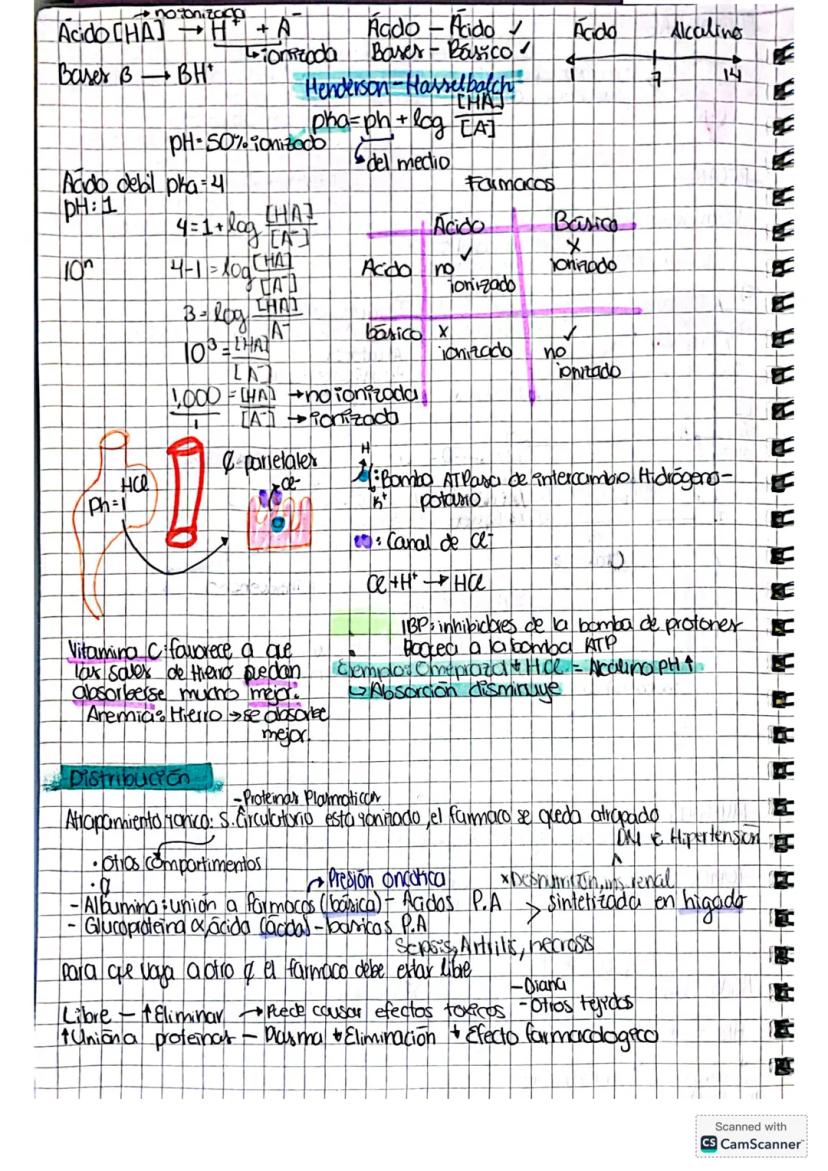 → no ionizada
Ácido [HA] → H⁺ + A⁻
↳ ionizada
Bases B → BH⁺
Ácido – Ácido ✓
Bases – Básico ✓
Ácido Alcalino
1 7 14
Henderson-Hasselbalch
pka = ph + log [HA]/[A]
pH = 50% ionizado
del medio
Ácido debil pka = 4
pH: 1
4 = 1 + log [HA]/[A⁻]
10ⁿ
4-1 = log [HA]/[A⁻]
3 = log [HA]/A⁻
10³ = [HA]/[A⁻]
1,000/1 = [HA] → no ionizada
[A⁻] → ionizada
Farmacos
Ácido Básico
Ácido no ionizado ✓ x ionizado
básico x ionizado ✓ no ionizado
HCl
Ph=1
₵ parietales
Cl⁻
H
K⁺
: Bomba ATPasa de intercambio Hidrógeno-
potasio
: Canal de Cl⁻
Cl + H⁺ → HCl
IBP: inhibidores de la bomba de protones
Boquea a la bomba ATP
Ejemplo: Omeprazol ↓ HCl = Alcalino pH ↑
↳ Absorción disminuye
Vitamina C: favorece a que
las sales de Hierro puedan
absorberse mucho mejor.
Anemia: Hierro → se absorbe
mejor.
Distribución
- Proteinas Plasmaticas
Atrapamiento ionico: S. Circulatorio está ionizado, el farmaco se queda atrapado
DM e Hipertensión
• Otros compartimentos
→ Presión oncotica
x Desnutrición, ins renal
- Albumina: unión a farmacos (básica) - Ácidos P.A > sintetizada en higado
- Glucoproteina α ácida (ácida) - basicos P.A
Sepsis, Artritis, necrosis
para que vaya a otro ₵ el farmaco debe estar libre
- Diana
Libre – ↑ Eliminar → Puede causar efectos toxicos - Otros tejidos
↑ Unión a proteinas – Plasma ↓ Eliminación ↓ Efecto farmacologico
Scanned with
CS CamScanner